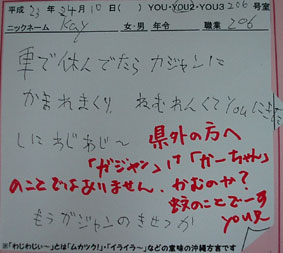 平成 23 年 24月 10日( ) YOU・YOU2・YOU3 206号室
ニックネーム Kay 女・男 年令 職業 206
車で休んでたらガジャンに
かまれまくり ねむれんくてYouにきた
しにわじわじ~
県外の方へ
「ガジャン」は「ガーちゃん」
のことではありません、かむのか?
蚊のことでーす
you2
もうガジャンのきせつか
※「わじわじぃ~」とは「ムカツク!」・「イライラ~」などの意味の沖縄方言です